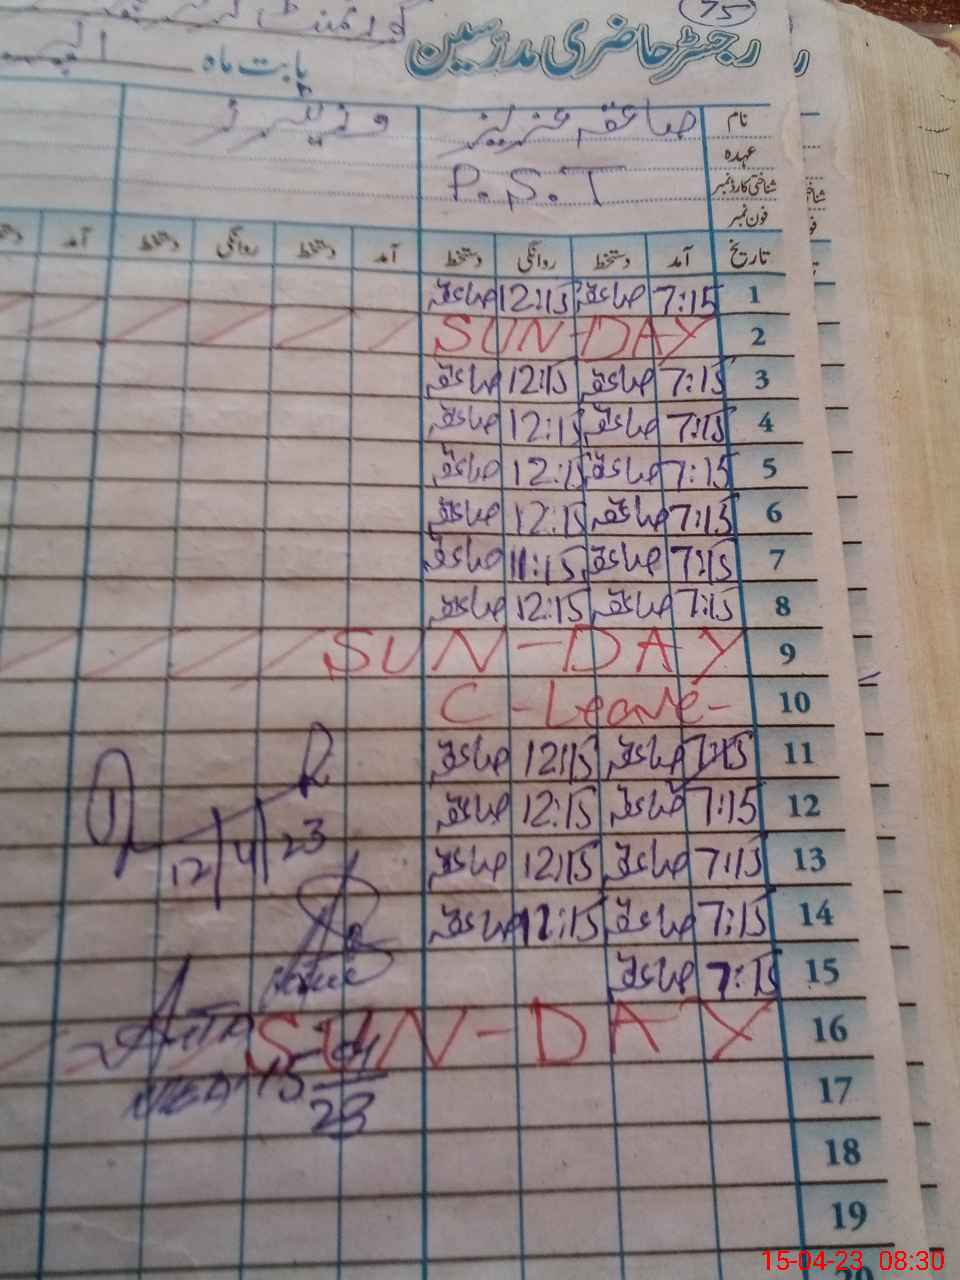 75
رجسٹر حاضری مدرسین
بابت ماہ
نام صاعقہ عزیز
عہدہ
شناختی کارڈ نمبر P.S.T
فون نمبر
تاریخ آمد دستخط روانگی دستخط آمد دستخط روانگی دستخط آمد
1 7:15 صاعقہ 12:15 صاعقہ
2 SUN-DAY
3 7:15 صاعقہ 12:15 صاعقہ
4 7:15 صاعقہ 12:15 صاعقہ
5 7:15 صاعقہ 12:15 صاعقہ
6 7:15 صاعقہ 12:15 صاعقہ
7 7:15 صاعقہ 11:15 صاعقہ
8 7:15 صاعقہ 12:15 صاعقہ
9 SUN-DAY
10 C-Leave-
11 7:15 صاعقہ 12:15 صاعقہ
12 7:15 صاعقہ 12:15 صاعقہ
12/4/23
13 7:15 صاعقہ 12:15 صاعقہ
14 7:15 صاعقہ 12:15 صاعقہ
15 7:15 صاعقہ
16 SUN-DAY
15-04
23
17
18
19
15-04-23 08:30